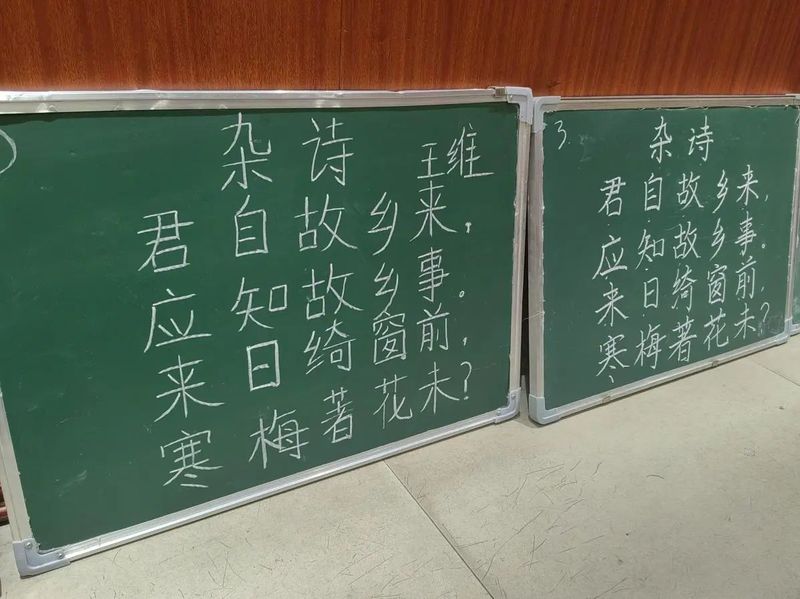 杂诗
王维
君自故乡来，
应知故乡事。
来日绮窗前，
寒梅著花未？
3.
杂诗
君自故乡来，
应知故乡事。
来日绮窗前，
寒梅著花未？